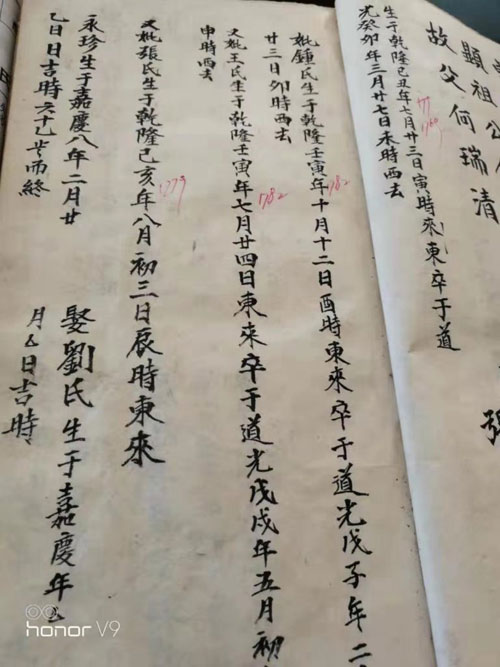 顯祖公
故父何瑞清
生于乾隆己丑年七月廿三日寅時來東卒于道
1769
光癸卯年三月廿七日未時西去
妣鍾氏生于乾隆壬寅年十月十二日酉時東來卒于道光戊子年二
1782
廿三日卯時西去
又妣王氏生于乾隆壬寅年七月廿四日東來卒于道光戊戌年五月初
1782
申時西去
又妣張氏生于乾隆己亥年八月初三日辰時東來
1779
永珍生于嘉慶八年二月廿
日吉時六十而終
娶劉氏生于嘉慶年
月日吉時
honor V9